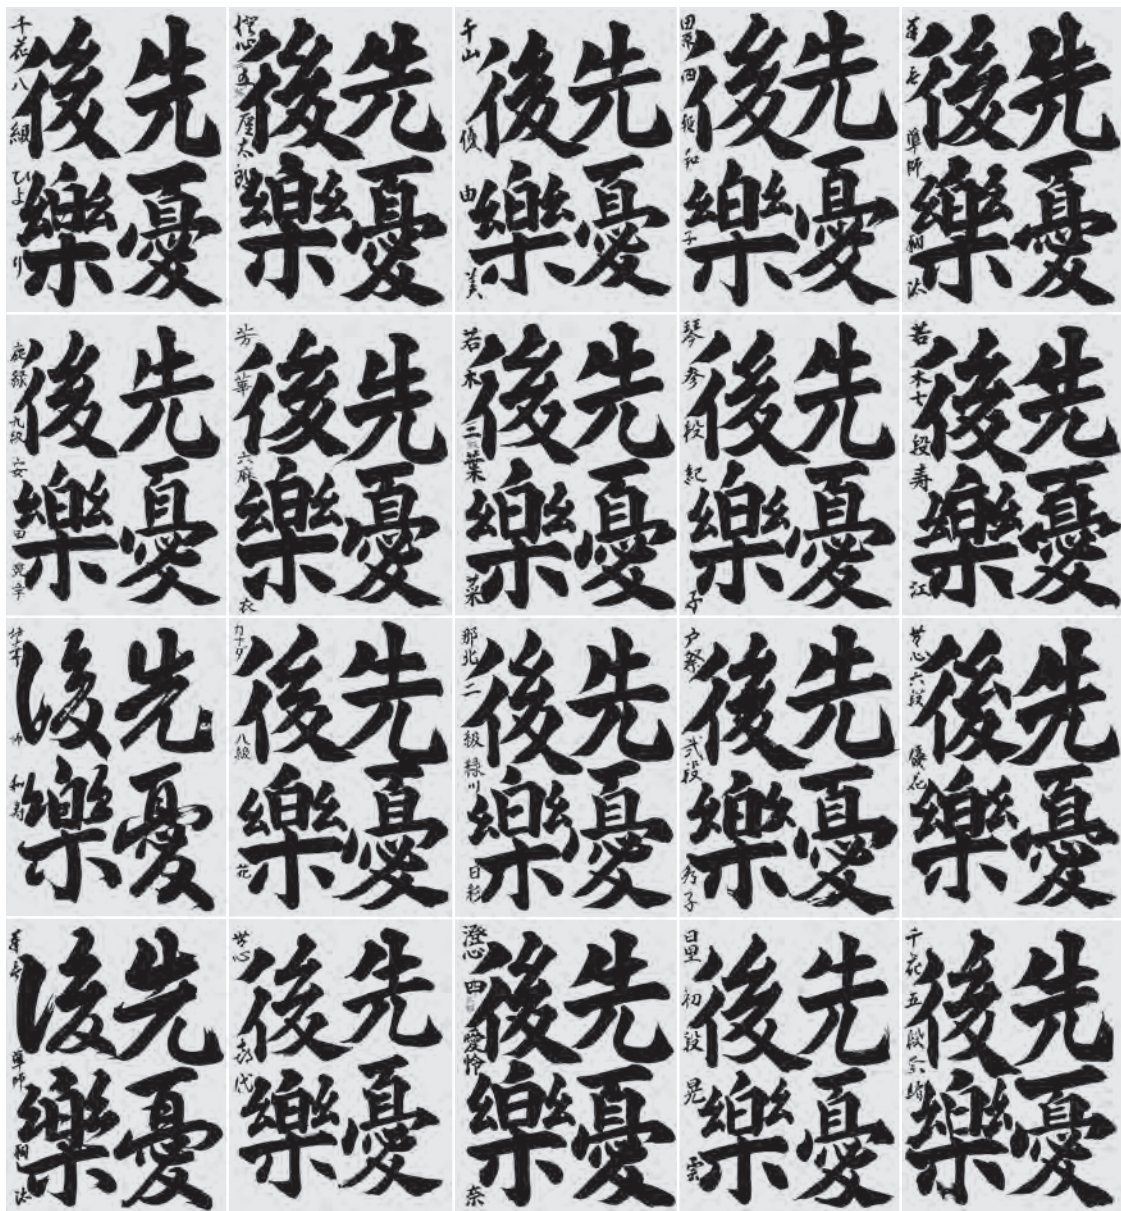 先憂
後樂
千花八級ひより
先憂
後樂
太郎
先憂
後樂
千山優由美
先憂
後樂
四段和子
先憂
後樂
準師
先憂
後樂
九級安田
先憂
後樂
芳華六麻衣
先憂
後樂
若木二葉菜
先憂
後樂
琴参段紀子
先憂
後樂
若木七段寿江
先憂
後樂
和寿
先憂
後樂
カナダ八級花
先憂
後樂
那北二級緑川日彩
先憂
後樂
戸祭弐段
先憂
後樂
六段優花
先憂
後樂
準師
先憂
後樂
喜代
先憂
後樂
澄心四愛怜奈
先憂
後樂
初段晃雲
先憂
後樂
千花五段